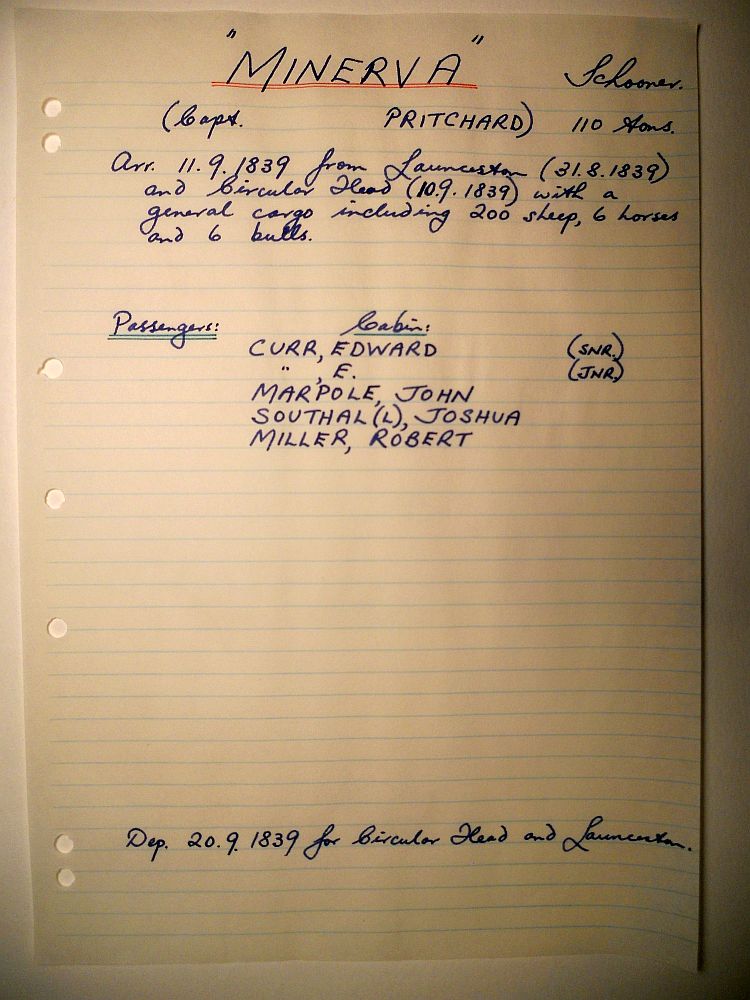 "MINERVA" Schooner.
(Capt. PRITCHARD) 110 tons.
Arr. 11.9.1839 from Launceston (31.8.1839)
and Circular Head (10.9.1839) with a
general cargo including 200 sheep, 6 horses
and 6 bulls.
Passengers: Cabin:
CURR, EDWARD (SNR.)
" , E. (JNR.)
MARPOLE, JOHN
SOUTHAL(L), JOSHUA
MILLER, ROBERT
Dep. 20.9.1839 for Circular Head and Launceston.